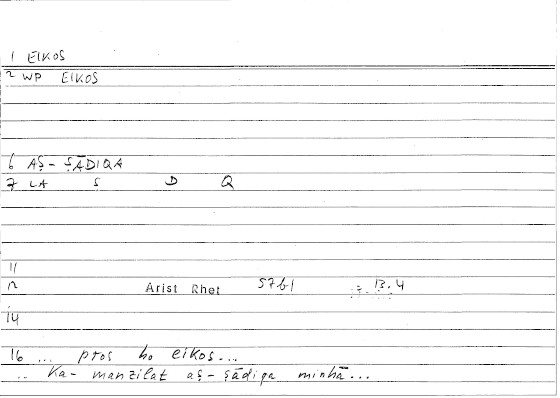 1 EIKOS
2 WP EIKOS
6 AṢ-ṢĀDIQA
7 LA Ṣ D Q
11
12 Arist Rhet 57b1 13.4
14
16 ... pros ho eikos...
.. Ka-manzilat aṣ-ṣādiqa minhā...